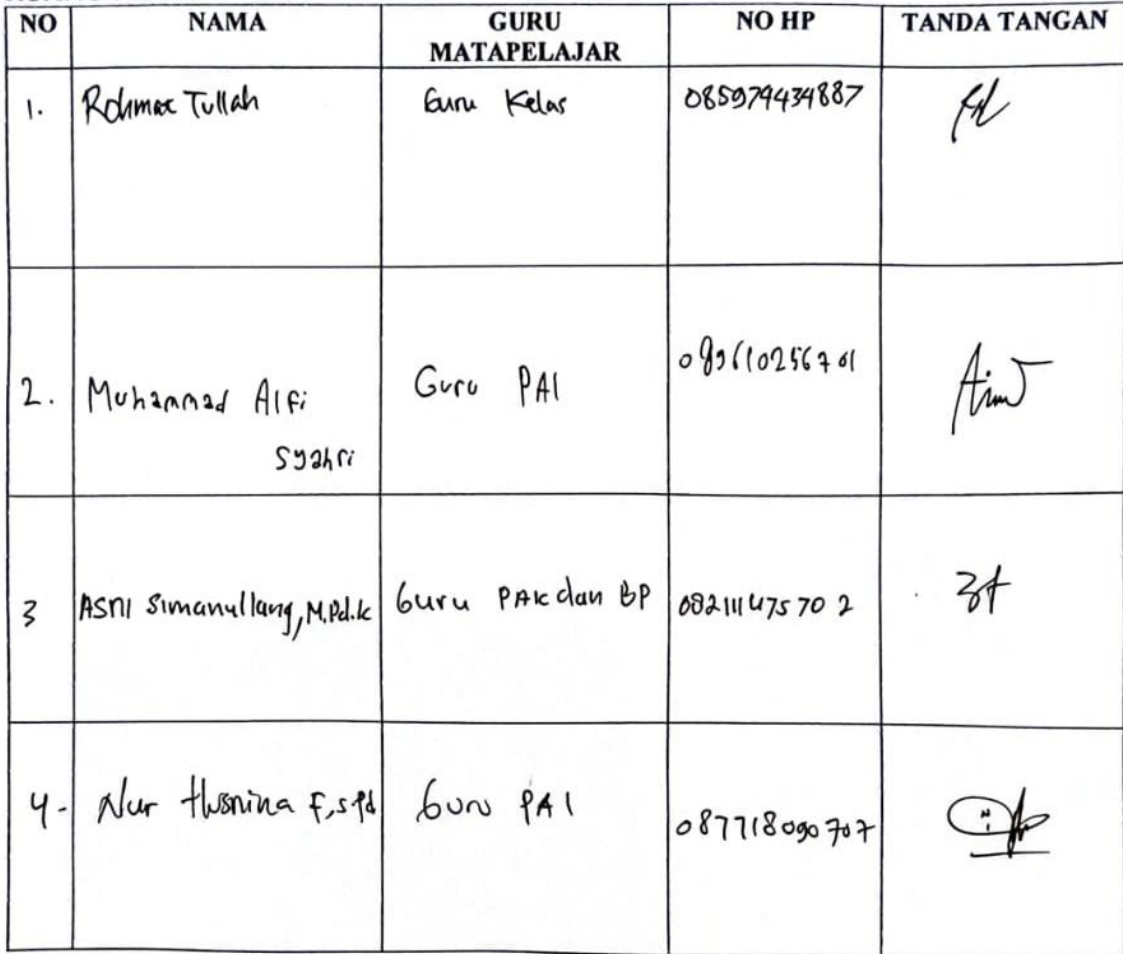 NO NAMA GURU MATAPELAJAR NO HP TANDA TANGAN
1. Rohmat Tullah Guru Kelas 085979434887
2. Muhammad Alfi Syahri Guru PAI 089610256701
3 Asni Simanullang, M.Pd.k Guru PAK dan BP 082111475702
4. Nur Husnina F, S.Pd Guru PAI 087718090707